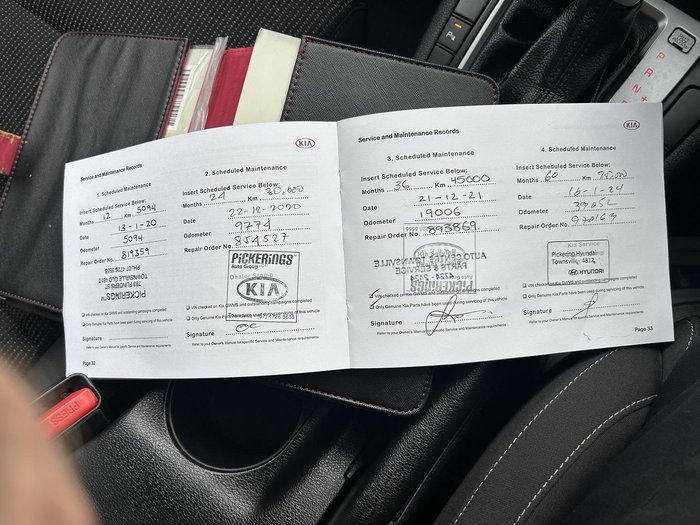 Service and Maintenance Records
KIA
1. Scheduled Maintenance
Insert Service Details Below:
Months 12 Km 5094
Date 13-1-20
Odometer 5094
Repair Order No. 819359
PICKERINGS
TOWNSVILLE QLD 4810
VIN checked on Kia GWMS and outstanding campaigns completed
Only Genuine Kia Parts have been used during servicing of this vehicle
Signature
Refer to your Owner's Manual for specific Service and Maintenance requirements
Page 32
2. Scheduled Maintenance
Insert Service Details Below:
Months 24 Km 30,000
Date 22-12-2020
Odometer 9774
Repair Order No. 854527
PICKERINGS
Auto Group
KIA
VIN checked on Kia GWMS and outstanding campaigns completed
Only Genuine Kia Parts have been used during servicing of this vehicle
Signature
Refer to your Owner's Manual for specific Service and Maintenance requirements
Service and Maintenance Records
KIA
3. Scheduled Maintenance
Insert Service Details Below:
Months 36 Km 45000
Date 21-12-21
Odometer 19006
Repair Order No. 893869
AUTO CENTRE TOWNSVILLE
PARTS & SERVICE
PICKERINGS
VIN checked on Kia GWMS and outstanding campaigns completed
Only Genuine Kia Parts have been used during servicing of this vehicle
Signature
Refer to your Owner's Manual for specific Service and Maintenance requirements
4. Scheduled Maintenance
Insert Service Details Below:
Months 60 Km
Date 16-1-24
Odometer
Repair Order No.
Kia Service
Pickering Hyundai
Townsville, 4812
HYUNDAI
VIN checked on Kia GWMS and outstanding campaigns completed
Only Genuine Kia Parts have been used during servicing of this vehicle
Signature
Refer to your Owner's Manual for specific Service and Maintenance requirements
Page 33
PRESS
P
R
N
D